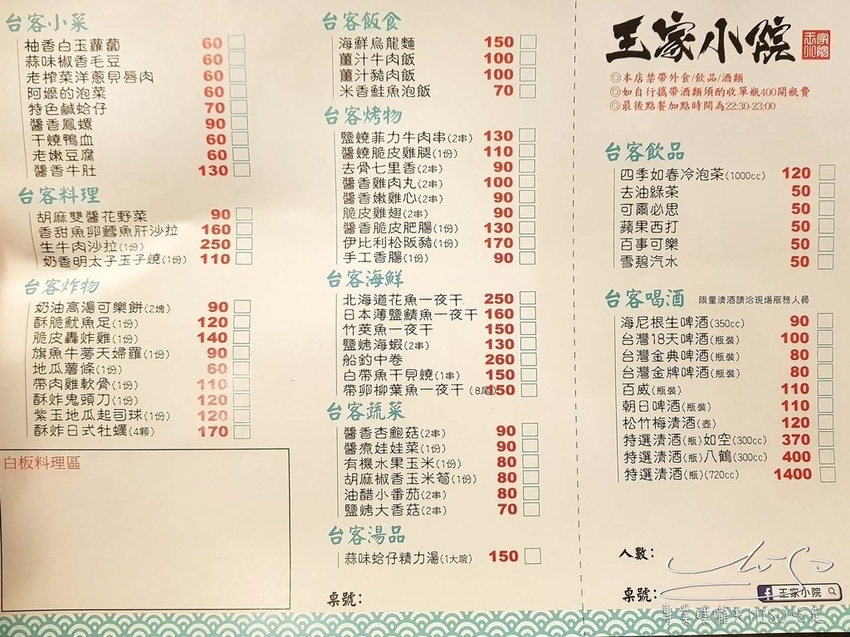 台客小菜
柚香白玉蘿蔔 60
蒜味椒香毛豆 60
老榨菜洋蔥貝唇肉 60
阿嬤的泡菜 60
特色鹹蛤仔 70
醬香鳳螺 90
干燒鴨血 60
老嫩豆腐 60
醬香牛肚 130
台客料理
胡麻雙醬花野菜 90
香甜魚卵鱈魚肝沙拉 160
生牛肉沙拉(1份) 250
奶香明太子玉子燒(1份) 110
台客炸物
奶油高湯可樂餅(2塊) 90
酥脆魷魚足(1份) 120
脆皮轟炸雞(1份) 140
旗魚牛蒡天婦羅(1份) 90
地瓜薯條(1份) 60
帶肉雞軟骨(1份) 110
酥炸鬼頭刀(1份) 120
紫玉地瓜起司球(1份) 120
酥炸日式牡蠣(4顆) 170
白板料理區
台客飯食
海鮮烏龍麵 150
薑汁牛肉飯 100
薑汁豬肉飯 100
米香鮭魚泡飯 70
台客烤物
鹽燒菲力牛肉串(2串) 130
醬燒脆皮雞腿(1份) 110
去骨七里香(2串) 90
醬香雞肉丸(2串) 100
醬香嫩雞心(2串) 90
脆皮雞翅(2串) 90
醬香脆皮肥腸(1份) 130
伊比利松阪豬(1份) 170
手工香腸(1份) 90
台客海鮮
北海道花魚一夜干 250
日本薄鹽鯖魚一夜干 160
竹筴魚一夜干 150
鹽烤海蝦(2串) 130
船釣中卷 260
白帶魚干貝燒(1串) 150
帶卵柳葉魚一夜干(8尾) 150
台客蔬菜
醬香杏鮑菇(2串) 90
醬煮娃娃菜(1份) 90
有機水果玉米(1份) 80
胡麻椒香玉米筍(1份) 80
油醋小番茄(2串) 80
鹽烤大香菇(2串) 70
台客湯品
蒜味蛤仔精力湯(1大碗) 150
桌號：
王家小院
王家小院
◎本店禁帶外食/飲品/酒類
◎如自行攜帶酒類須酌收單瓶400開瓶費
◎最後點餐加點時間為22:30-23:00
台客飲品
四季如春冷泡茶(1000cc) 120
去油綠茶 50
可爾必思 50
蘋果西打 50
百事可樂 50
雪碧汽水 50
台客喝酒 限量清酒請洽現場服務人員
海尼根生啤酒(350cc) 90
台灣18天啤酒(瓶裝) 100
台灣金典啤酒(瓶裝) 80
台灣金牌啤酒(瓶裝) 80
百威(瓶裝) 110
朝日啤酒(瓶裝) 110
松竹梅清酒(壺) 120
特選清酒(瓶)如空(300cc) 370
特選清酒(瓶)八鶴(300cc) 400
特選清酒(瓶)(720cc) 1400
人數：
桌號：
王家小院